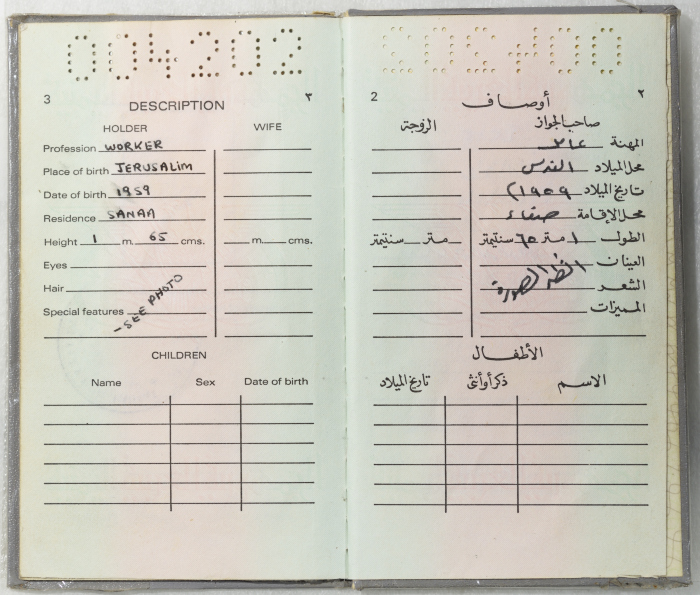 004202
3
٣
DESCRIPTION
HOLDER WIFE
Profession WORKER
Place of birth JERUSALIM
Date of birth 1959
Residence SANAA
Height 1 m. 65 cms. m. cms.
Eyes
Hair
Special features
- SEE PHOTO
CHILDREN
Name Sex Date of birth
2
٢
أوصاف
صاحب الجواز الزوجة
المهنة عامل
محل الميلاد القدس
تاريخ الميلاد ١٩٥٩
محل الإقامة صنعاء
الطول ١ متر ٦٥ سنتيمتر متر سنتيمتر
العينان
الشعر
المميزات
انظر الصورة
الأطفال
الاسم ذكر أو أنثى تاريخ الميلاد